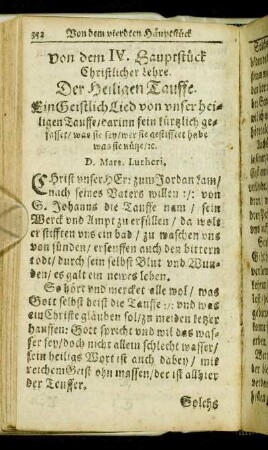 352 Von dem vierdten Hauptstück
Von dem IV. Hauptstück
Christlicher Lehre.
Der Heiligen Tauffe.
Ein Geistlich Lied von vnser hei-
ligen Tauffe/darinn fein kürtzlich ge-
fasset/was sie sey/wer sie gestifftet habe
was sie nütze/ꝛc.
D. Mart. Lutheri.
Christ vnser HErr zum Jordan kam/
nach seines Vaters willen :/: von
S. Johanns die Tauffe nam / sein
Werck vnd Ampt zu erfüllen / da wolt
er stifften vns ein bad / zu waschen vns
von sünden/ erseuffen auch den bittern
todt/ durch sein selbst Blut vnd Wun-
den/ es galt ein newes leben.
So hört vnd mercket alle wol / was
Gott selbst heist die Tauffe :/: vnd was
ein Christe gläuben sol/zu meiden ketzer
hauffen: Gott spricht vnd wil das was-
ser sey/doch nicht allein schlecht wasser/
sein heiligs Wort ist auch dabey / mit
reichem Geist ohn massen/der ist allhier
der Teuffer.
Solchs